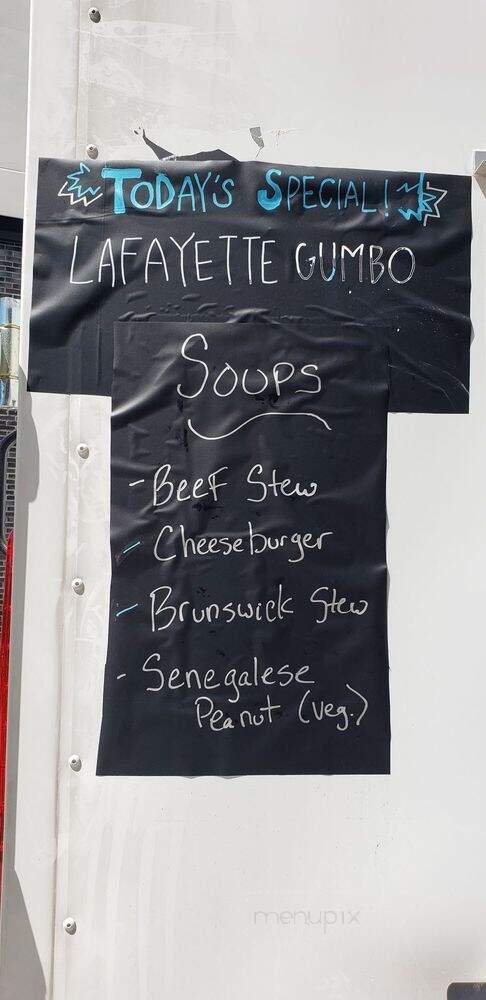 TODAY'S SPECIAL!
LAFAYETTE GUMBO
SOUPS
- Beef Stew
- Cheeseburger
- Brunswick Stew
- Senegalese
Peanut (veg.)
menupix